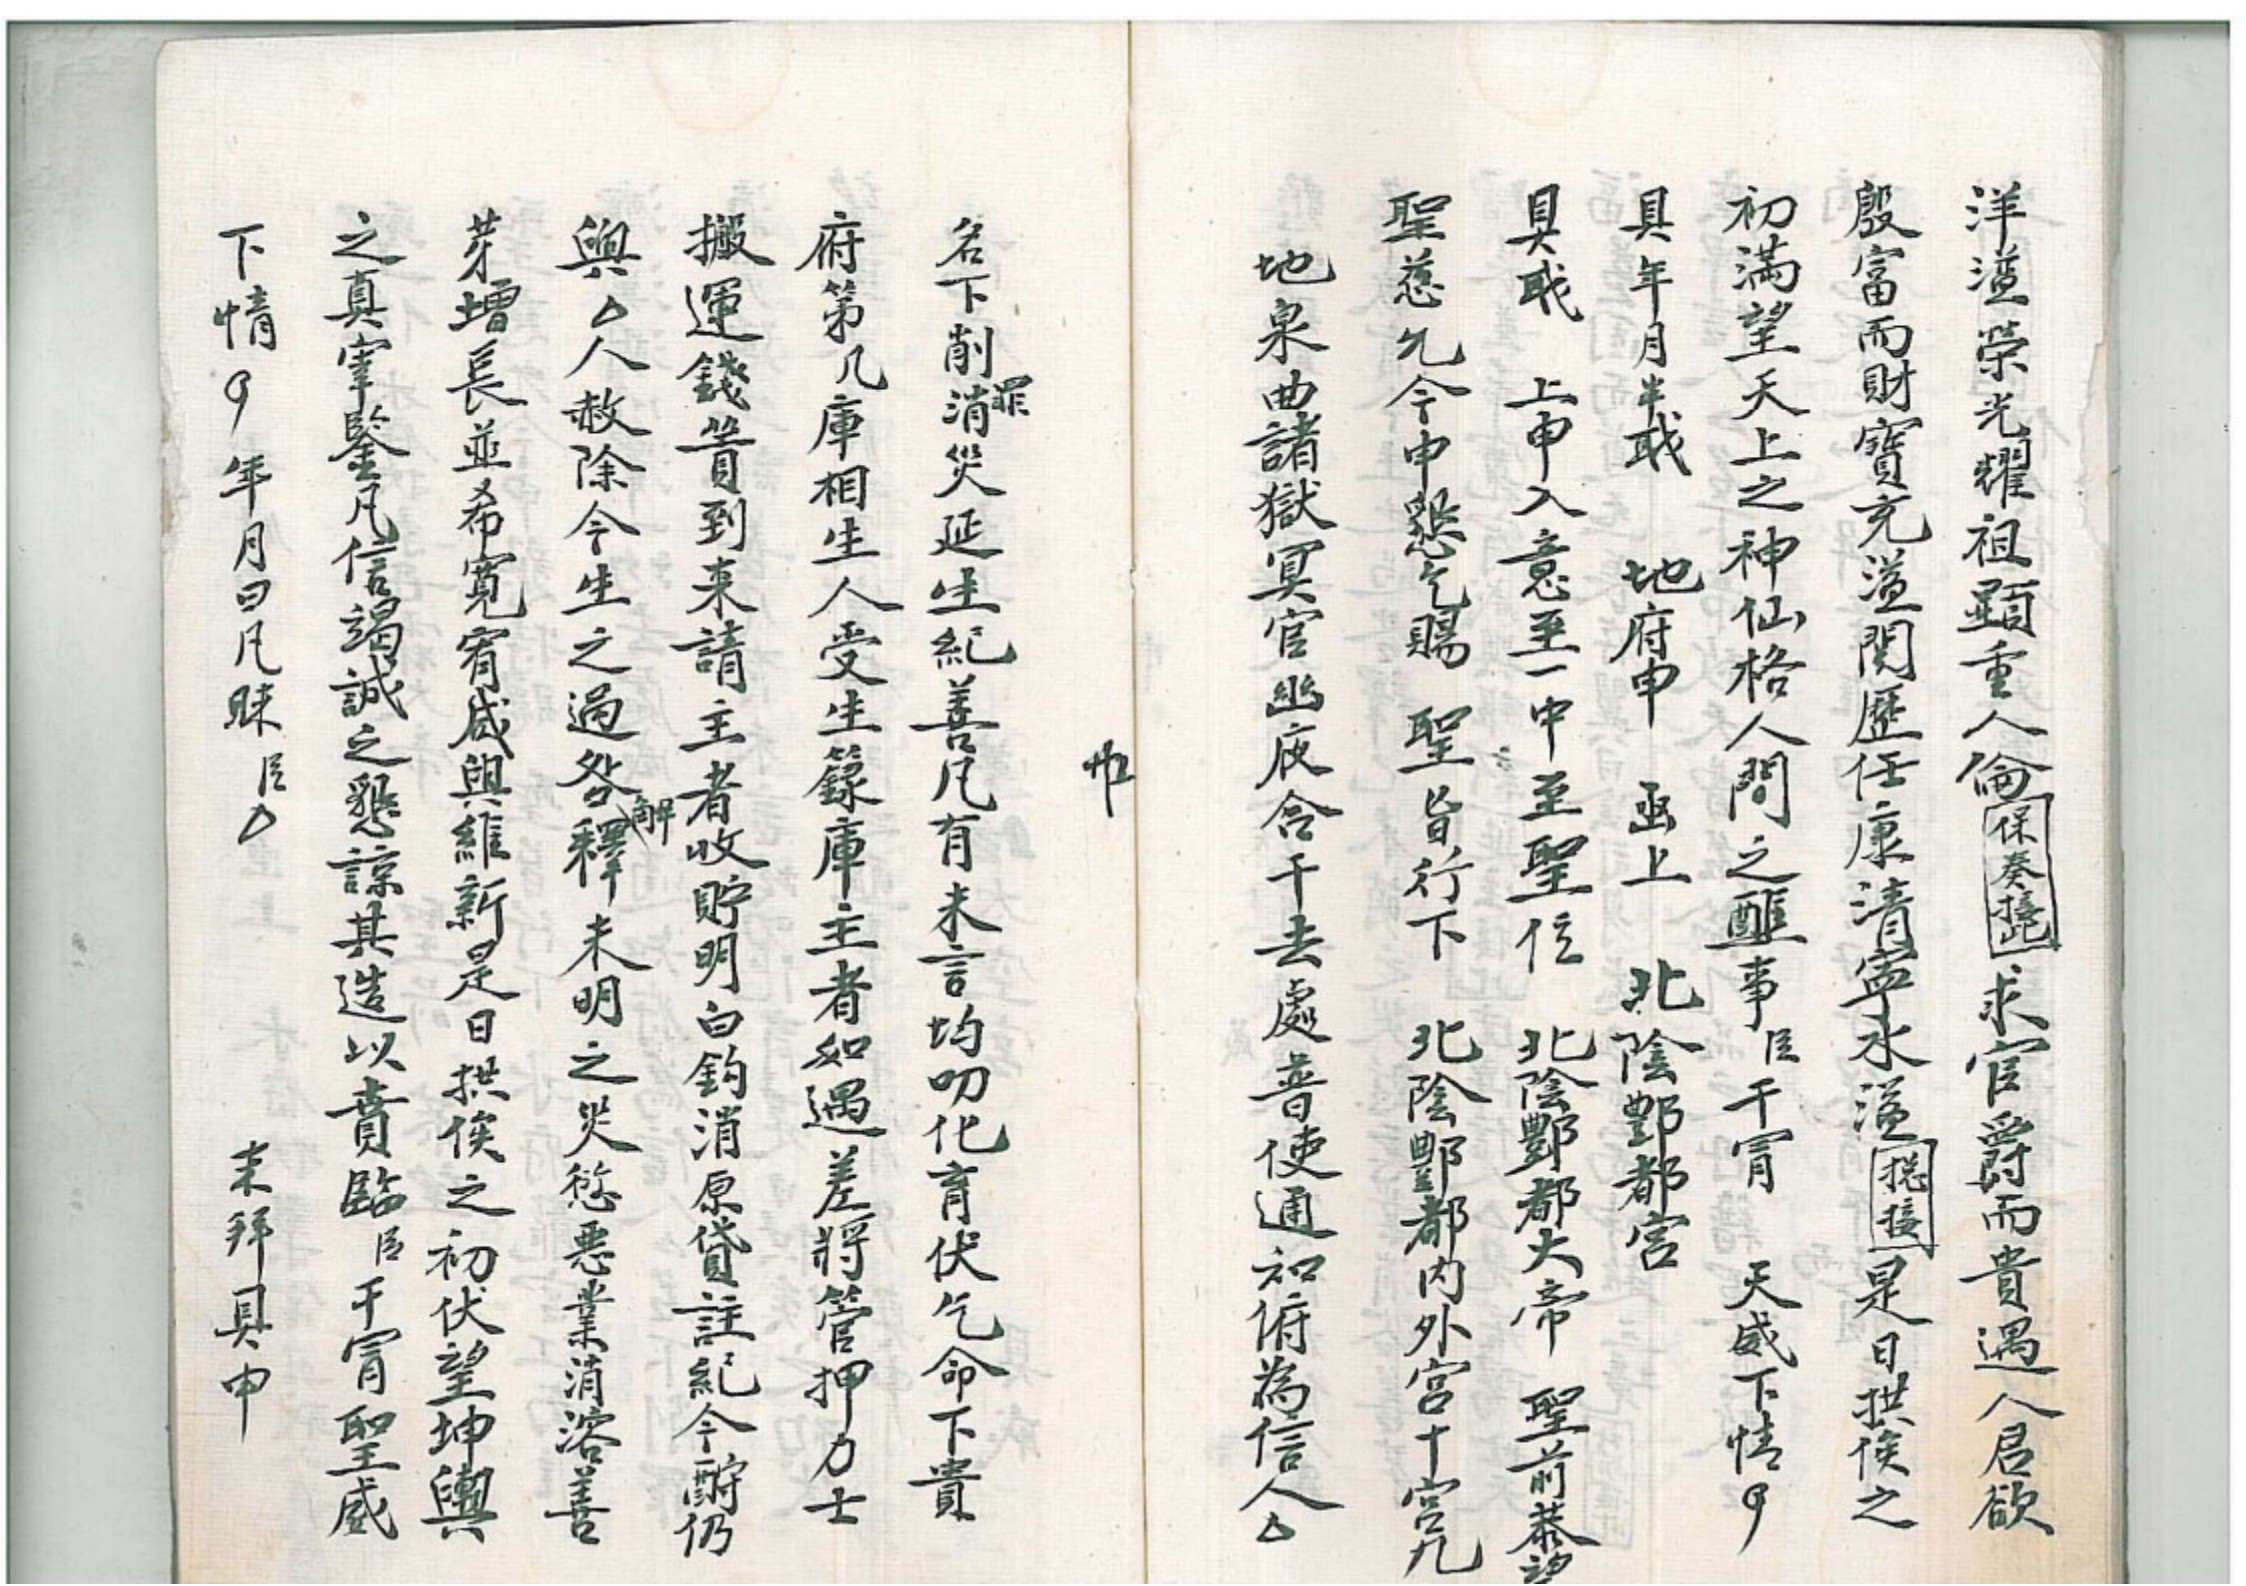 洋溢榮光耀祖顕重人倫保奏接此求官爵而貴遇人君欲
殷富而財寶充溢閱歷任康清寧水溢搃接是日拱俟之
初滿望天上之神仙格人間之醮事臣干冐 天威下情
具年月半戢 地府申 函上 北陰酆都宮
具戢 上申入意至一中至聖位 北陰酆都大帝 聖前恭望
聖慈允今申懇乞賜 聖旨行下 北陰酆都內外宮十宮九
地泉曲諸獄冥官幽夜含干去處普使通知俯為信人厶
名下削罪消災延生紀善凡有未言均叨化育伏乞命下貴
府第几庫相生人受生籙庫主者如遇差將管押力士
搬運錢簣到来請主者收貯明白鈎消原貸註紀今酧仍
與厶人赦除今生之過咎釋解未明之災愆惡業消溶善
芽增長並希寬宥咸與維新是日拱俟之初伏望坤輿
之真宰鑒凡信竭誠之懇諒其造以賁臨臣干冐聖威
下情 年月日凡昧臣厶 耒拜具申